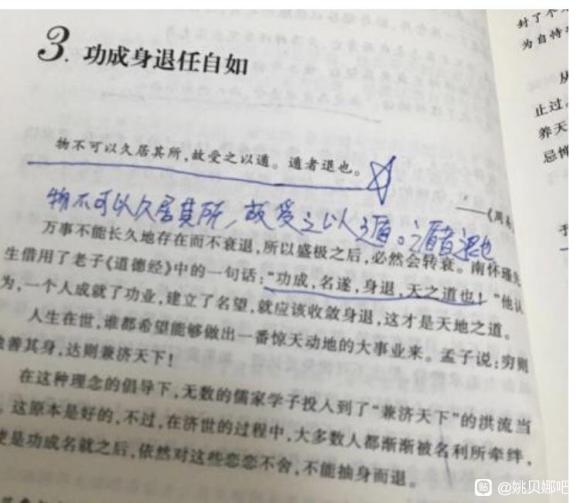 3. 功成身退任自如
物不可以久居其所,故受之以遁。遁者退也。
——《周易
物不可以久居其所,故受之以遁。遁者退也
万事不能长久地存在而不衰退,所以盛极之后,必然会转衰。南怀瑾先
生借用了老子《道德经》中的一句话:“功成,名遂,身退,天之道也!”他认
为,一个人成就了功业,建立了名望,就应该收敛身退,这才是天地之道。
人生在世,谁都希望能够做出一番惊天动地的大事业来。孟子说:穷则
独善其身,达则兼济天下!
在这种理念的倡导下,无数的儒家学子投入到了“兼济天下”的洪流当
,这原本是好的,不过,在济世的过程中,大多数人都渐渐被名利所牵绊,
使是功成名就之后,依然对这些恋恋不舍,不能抽身而退。
封了个
为自恃
从
止过。
养天
忌惮
贴 @姚贝娜吧